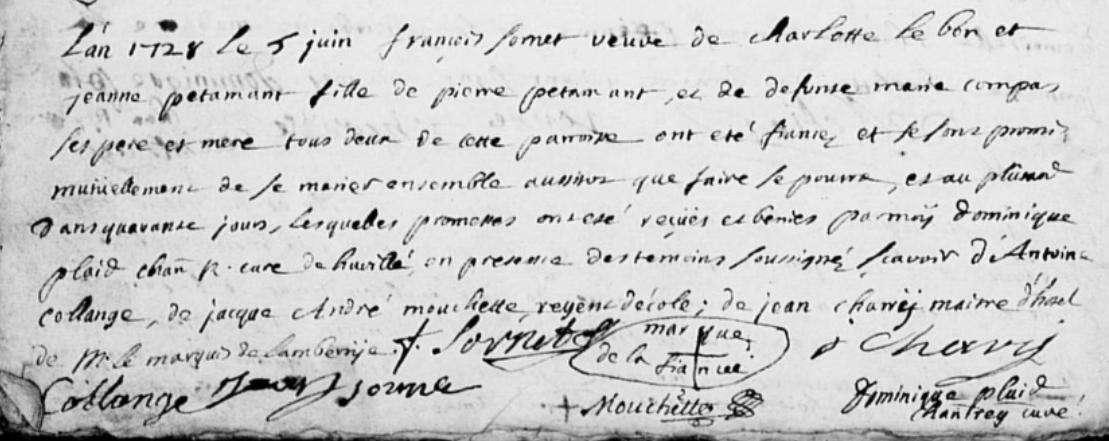 L'an 1728 le 5 juin françois sornet veuve de charlotte le bon et
jeanne petamant fille de pierre petamant, et de defunte marie compas
ses pere et mere tous deux de cette parroisse ont eté fiancez et se sont promis
mutuellement de se marier ensemble aussitot que faire se pourra, et au plutard
dans quarante jours, lesquelles promesses ont eté reçuës et benies par moÿ dominique
plaid chan. R. curé de huvillé, en presence des temoins soussignez scavoir d'Antoine
collange, de jacque André mouchette, regent d'école; de jean charrij maitre d'hotel
de Mr. le marquis de lambertije.
Sornet marque de la fiancée Charij
Collange sornet
+ Mouchette
Dominique plaid
chan. reg curé